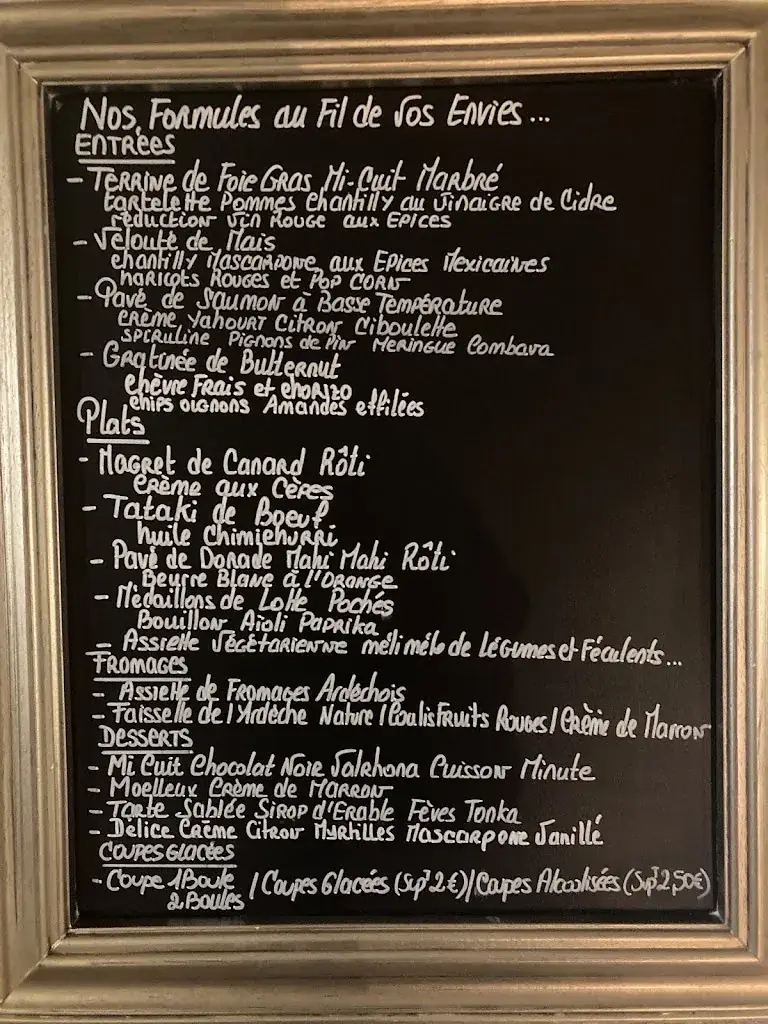 Nos Formules au Fil de Vos Envies...
ENTRÉES
- TERRINE de Foie Gras Mi-Cuit Marbré
Tartelette Pommes chantilly au Vinaigre de Cidre
réduction Vin Rouge aux Epices
- Velouté de Maïs
chantilly Mascarpone aux Epices Mexicaines
haricots Rouges et Pop Corn
- Pavé de Saumon à Basse Température
crème Yahourt Citron Ciboulette
spiruline Pignons de Pin Meringue Combava
- Gratinée de Butternut
chèvre Frais et chorizo
chips oignons Amandes effilées
Plats
- Magret de Canard Rôti
Crème aux Cèpes
- Tataki de Boeuf
huile Chimichurri
- Pavé de Dorade Mahi Mahi Rôti
Beurre Blanc à l'Orange
- Médaillons de Lotte Pochés
Bouillon Aïoli Paprika
- Assiette Végétarienne méli mélo de Légumes et Féculents...
FROMAGES
- Assiette de Fromages Ardéchois
- Faisselle de l'Ardèche Nature / Coulis Fruits Rouges / Crème de Marron
DESSERTS
- Mi Cuit Chocolat Noir Valrhona Cuisson Minute
- Moelleux Crème de Marron
- Tarte Sablée Sirop d'Erable Fèves Tonka
- Délice Crème Citron Myrtilles Mascarpone Vanillé
COUPES GLACÉES
- Coupe 1 Boule / Coupes Glacées (Supt 2€) / Coupes Alcoolisées (Supt 2,50€)
2 Boules